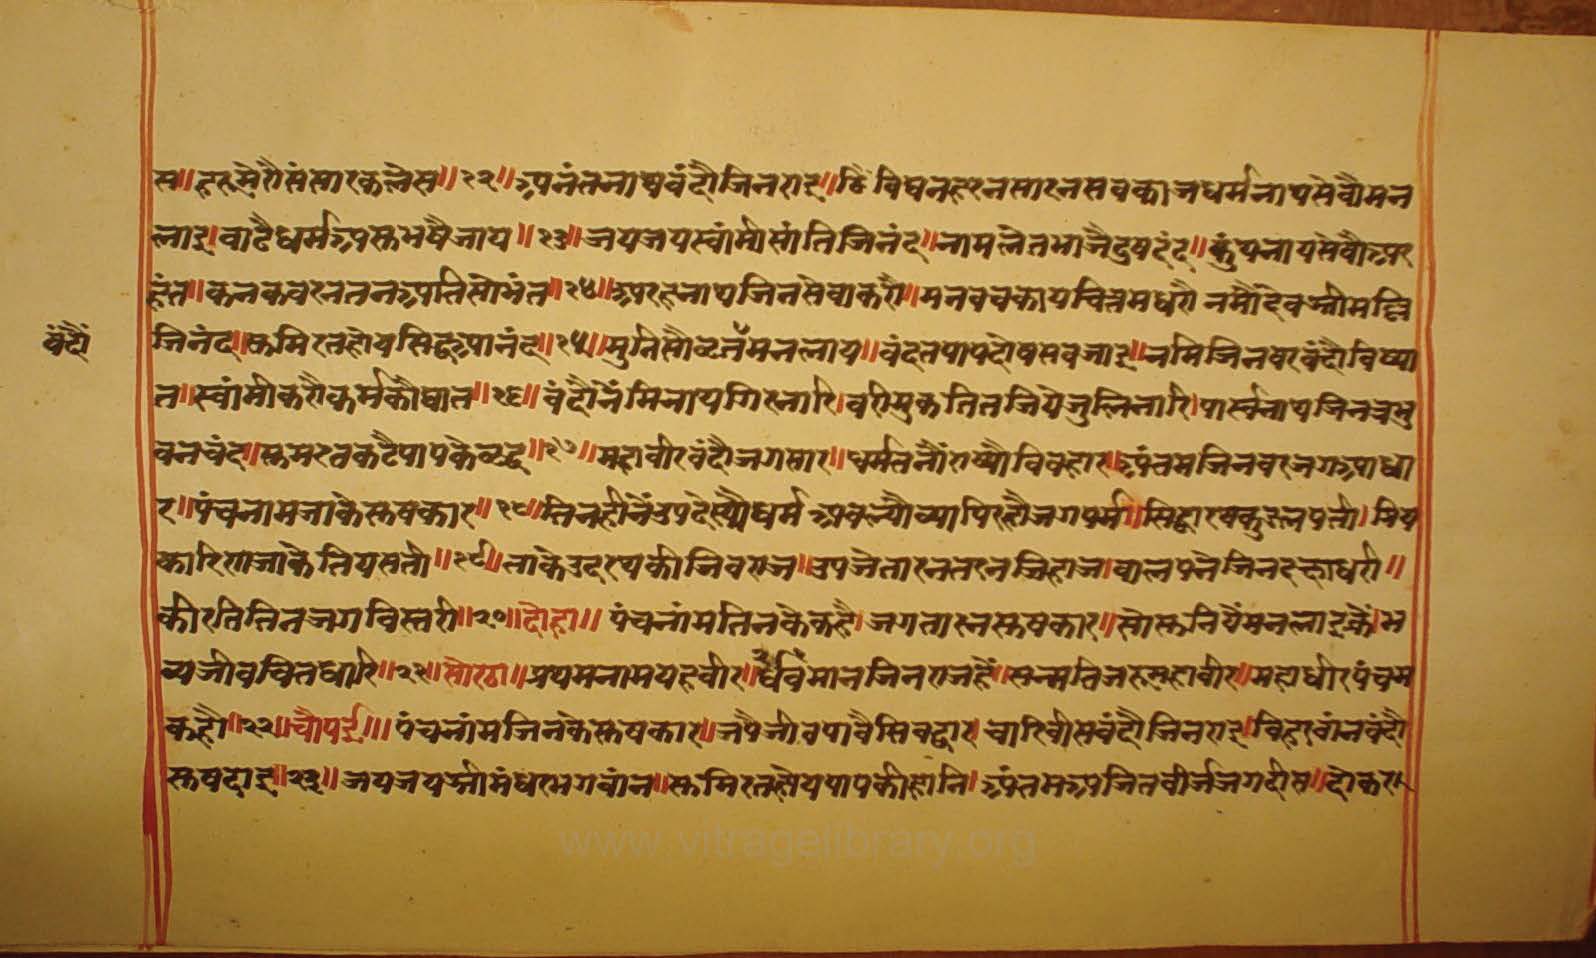 स॥हरूमेरौसंसारकलेस॥१२॥अनंतनाथवंदौजिनराइ॥हैविघनहरनसारनसबकाजधर्मनाथसेवौमन
लाइ।बाढैधर्मअसुभषैजाय॥१३॥जयजयस्वांमीसांतिजिनंद॥नामलेतभाजैदुषदंद॥कुंथनाथसेवौअर
हंत॥कनकवरनतनअतिसोभंत॥१४॥अरहनाथजिनसेवाकरौ॥मनवचकायचितमधरौनमौंदेवश्रीमल्लि
वंदौं
जिनंद॥सुमिरतहोयसिद्धआनंद॥१५॥मुनिसौव्रतमनलाय॥वंदतपापदोषसबजाइ॥नमिजिनवरवंदौविष्या
त॥स्वांमीकरौकर्मकौघात॥१६॥वंदौनेंमिनाथगिरनारि।वरीमुकतितजियेजुलिनारि।पार्स्वनाथजिनत्रभु
वनचंद॥सुमरतकटैपापकेव्रद्द॥१७॥महावीरवंदौजगसार॥धर्मतनौंराष्यौविवहार॥अंतमजिनवरजगआधा
र॥पंचनामजाकेसुषकार॥१८॥तिनहीनेंउपदेस्यौधर्मअबल्यौव्यापिरह्यौजगपर्म॥सिद्धारथकुडलपती।प्रिय
कारिराजाकेतियसती॥१९॥ताकेउदरथकीजिवराज॥उपजेतारनतरनजिहाज।बालपनेजिनदक्षाधरी॥
कीरतितिनजगविस्तरी॥२०॥दोहा॥पंचनांमतिनकेकहै।जगतारनसुषकार॥सोसुनियैंमनलाइकैं।भ
व्यजीवचितधारि॥२१॥सोरठा॥प्रथमनामयहवीर॥र्धवमानजिनराजहैं॥सन्मतिजरुमहावीर॥महाधीरपंचम
कहौ॥२२॥चौपई॥पंचनांमजिनकेसुषकार॥जपैजीवपावैसिवद्वार।चारिवीसवंदौजिनराइ।विहरवांनवंदौ
सुषदाइ॥२३॥जयजयश्रीमंधरभगवांन॥सुमिरतहोयपापकीहांनि।अंतमअजितवीर्जजगदीस॥दोकर
www.vitragelibrary.org